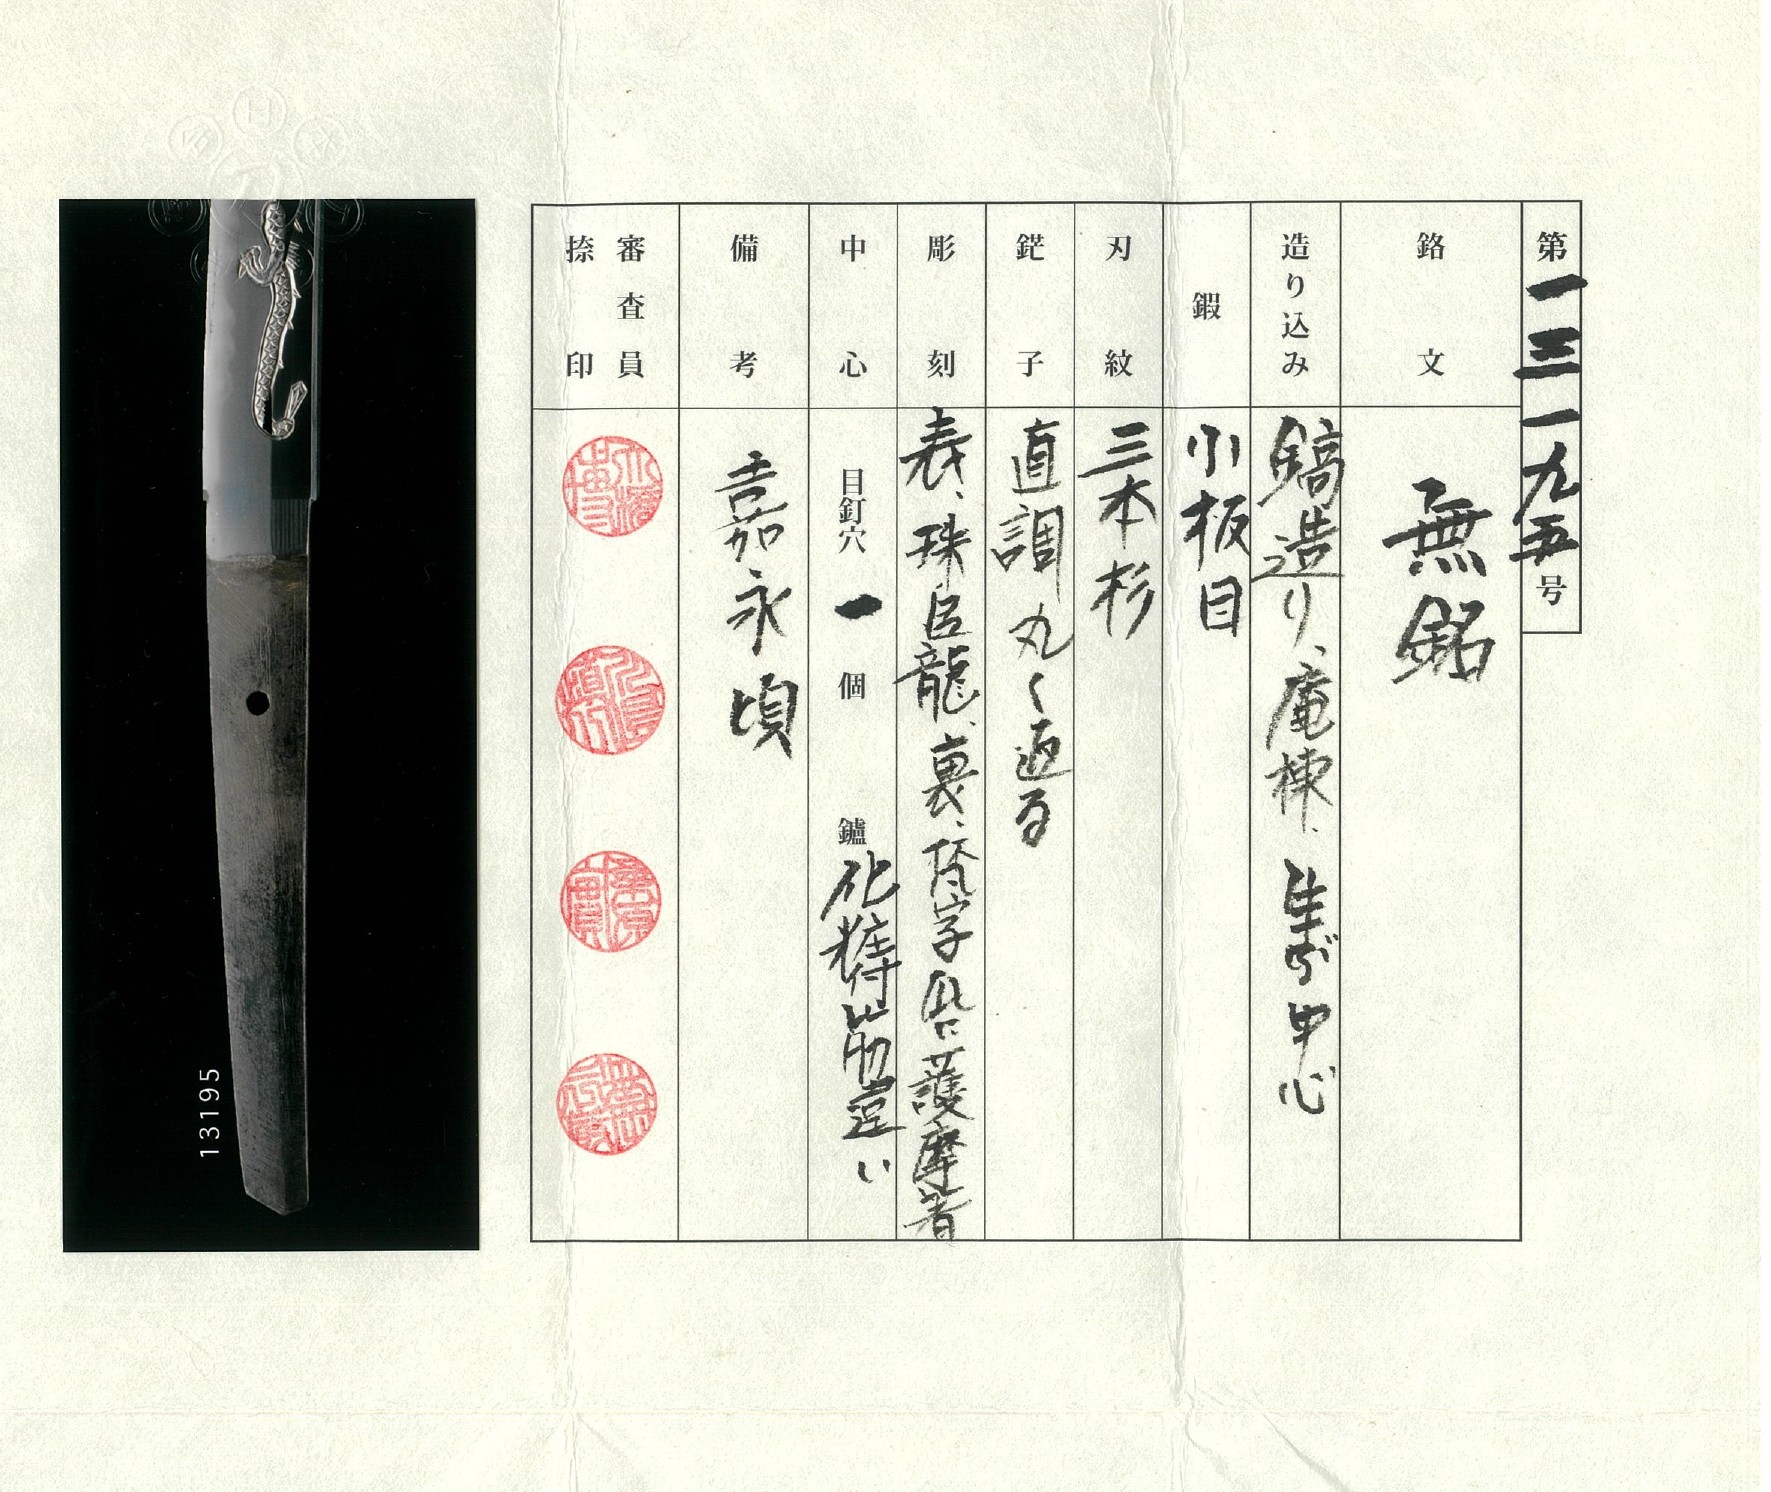 第一三一九五号
銘文
無銘
造り込み
鎬造り、庵棟、生ぶ中心
鍜
小板目
刃紋
三本杉
鋩子
直調丸く返る
彫刻
表、珠巨龍、裏、梵字 護摩著
中心
目釘穴 一 個
鑢 化粧付筋違い
備考
嘉永頃
審査員
捺印
13195